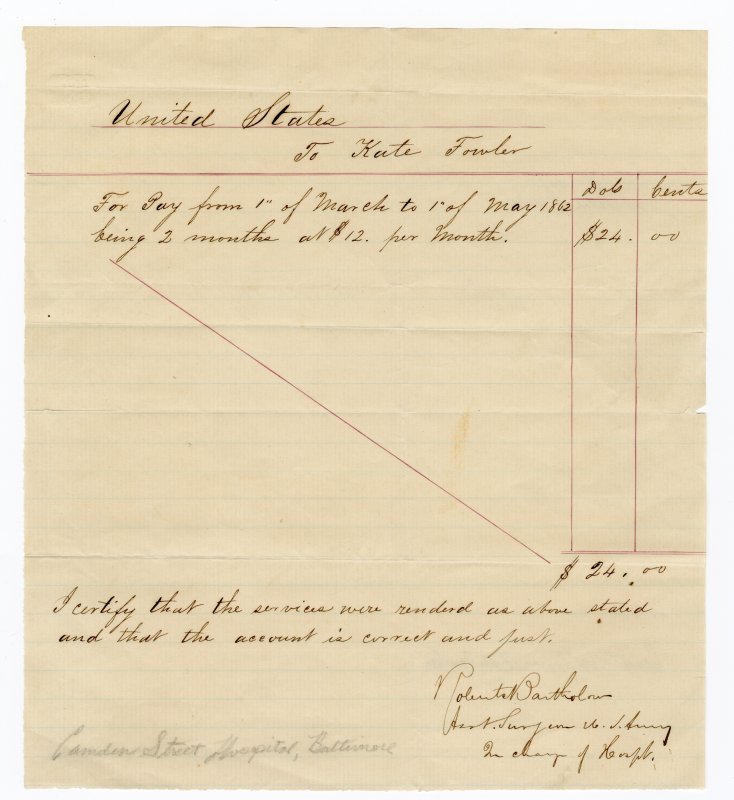 United States
To Kate Fowler
Dols Cents
For Pay from 1" of March to 1" of May 1862
being 2 months at $12. per Month. $24. 00
$ 24. 00
I certify that the services were renderd as above stated
and that the account is correct and just.
Roberts Bartholow
Asst. Surgeon U. S. Army
In charge of Hospt.
Camden Street Hospital, Baltimore